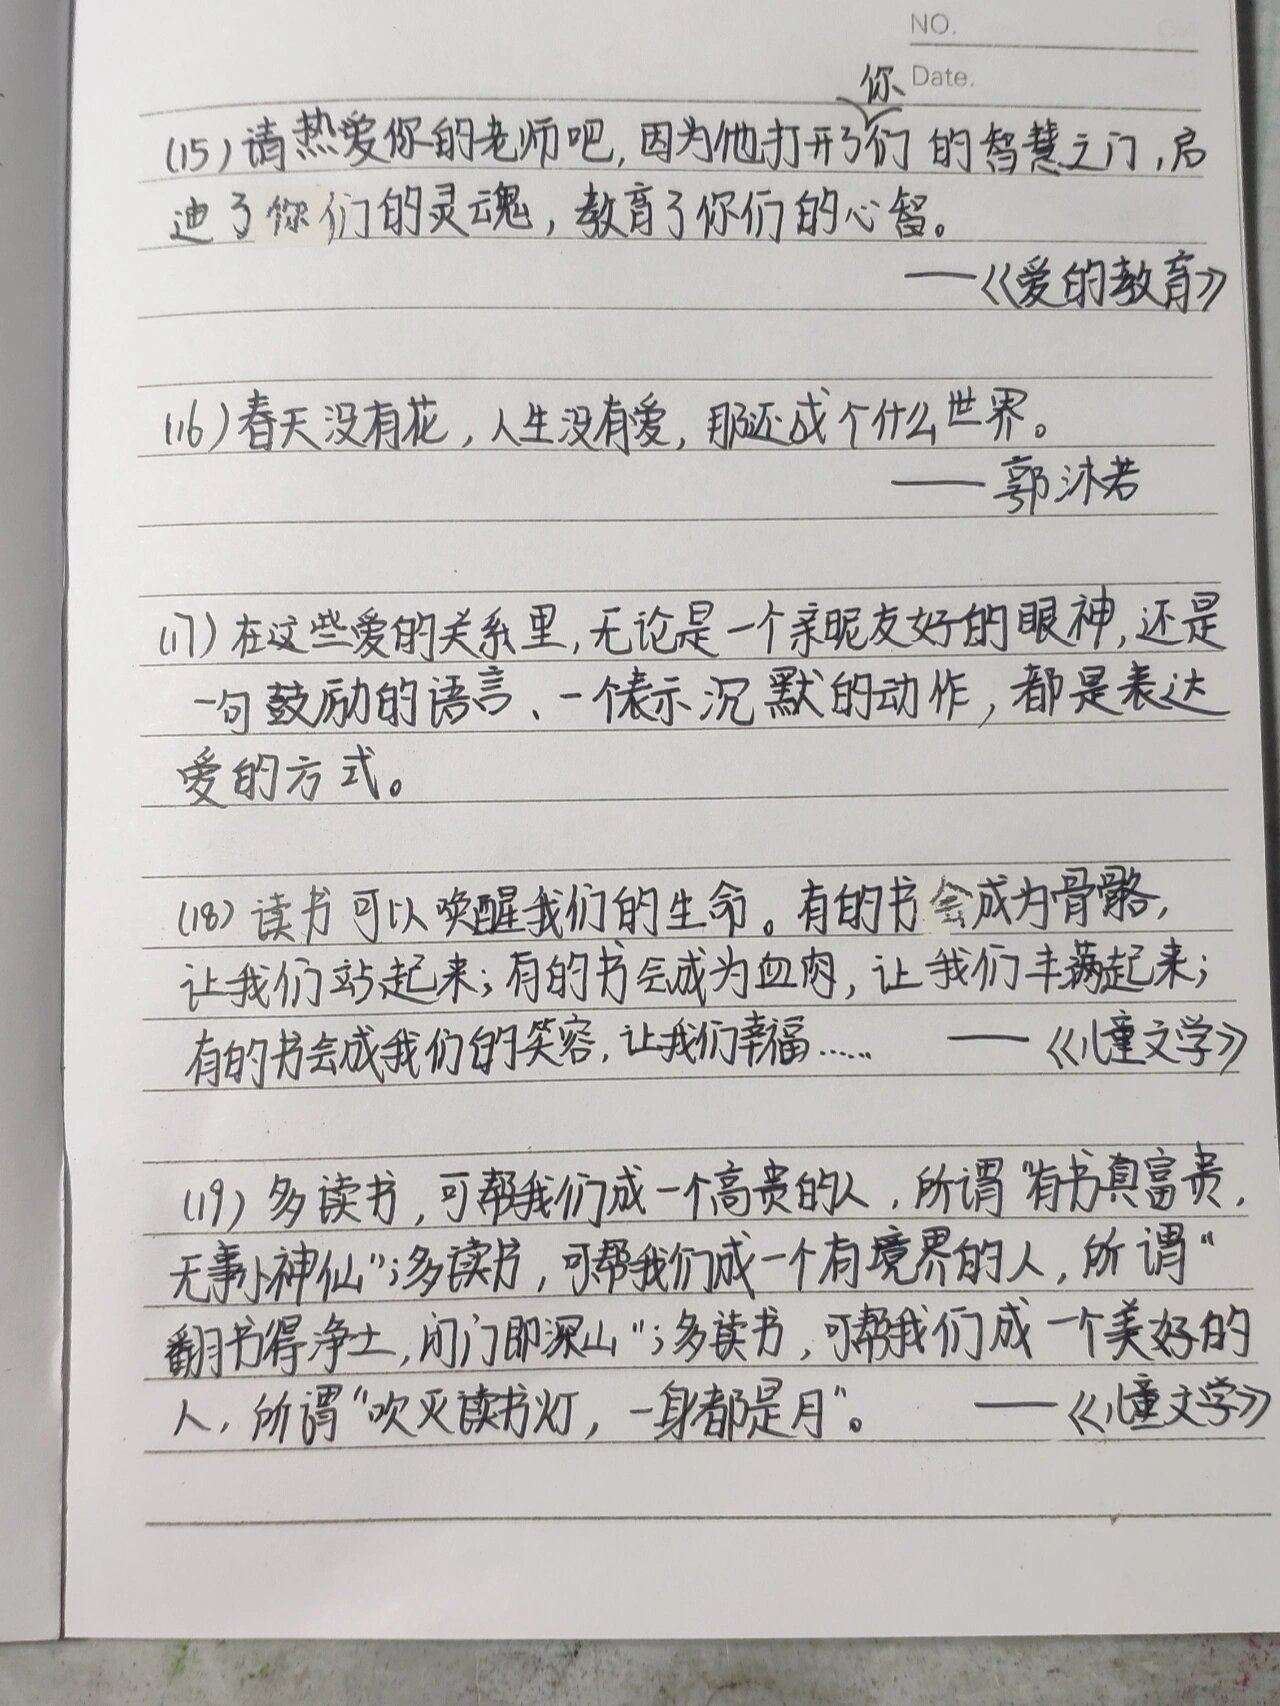 NO.
Date.
(15)请热爱你的老师吧,因为他打开了你们的智慧之门,启
迪了你们的灵魂,教育了你们的心智。
——《爱的教育》
(16)春天没有花,人生没有爱,那还成个什么世界。
——郭沐若
(17)在这些爱的关系里,无论是一个亲昵友好的眼神,还是
一句鼓励的语言、一个表示沉默的动作,都是表达
爱的方式。
(18)读书可以唤醒我们的生命。有的书会成为骨骼,
让我们站起来;有的书会成为血肉,让我们丰满起来;
有的书会成我们的笑容,让我们幸福…… ——《儿童文学》
(19)多读书,可帮我们成一个高贵的人,所谓“有书真富贵,
无事小神仙”;多读书,可帮我们成一个有境界的人,所谓“
翻书得净土,闭门即深山”;多读书,可帮我们成一个美好的
人,所谓“吹灭读书灯,一身都是月”。 ——《儿童文学》